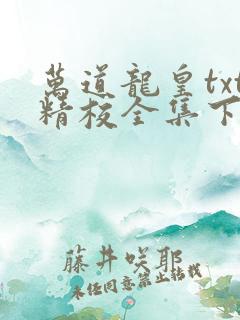 萬道龍皇txt
精校全集下
藤井咲耶
未经同意禁止转载